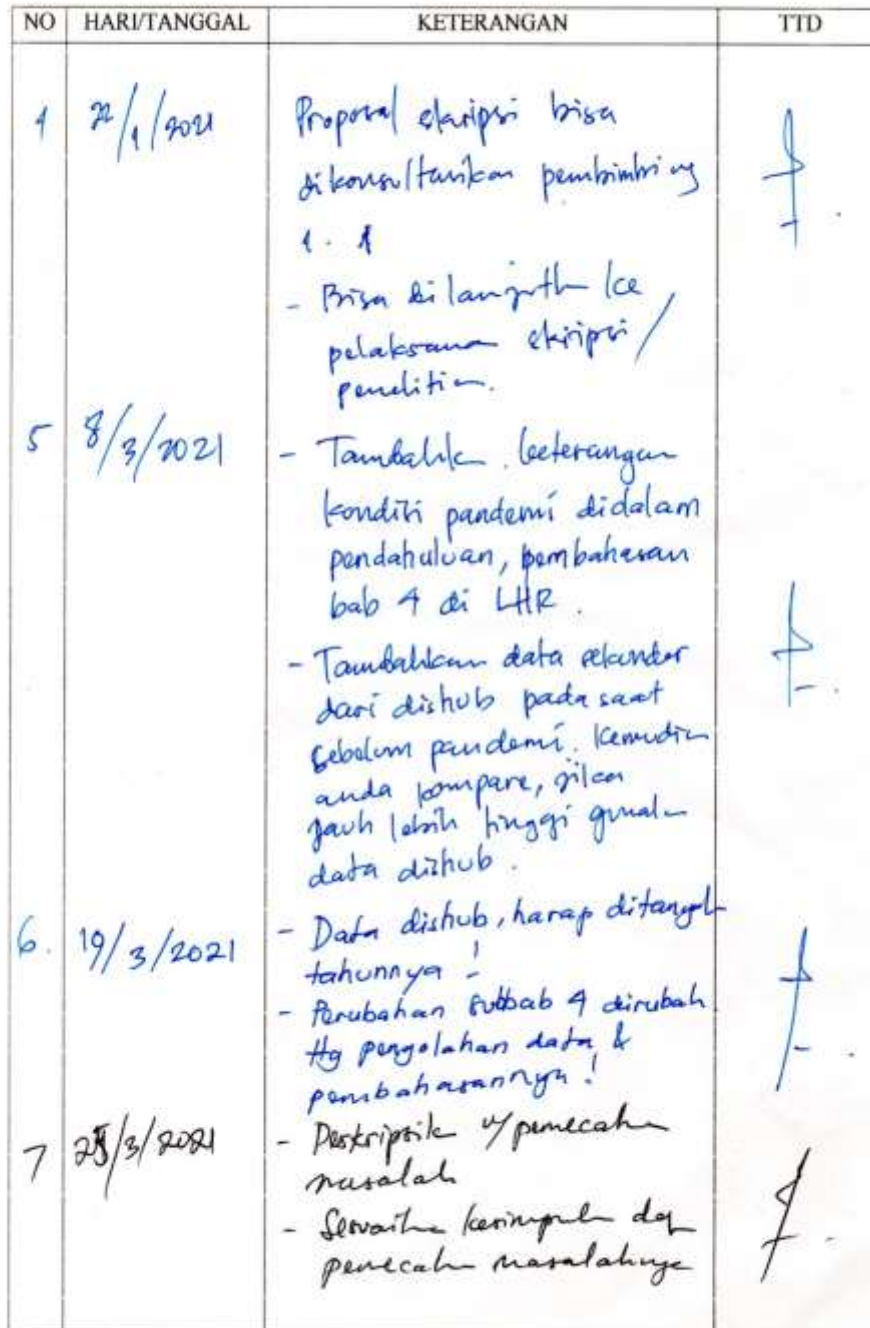 NO HARI/TANGGAL KETERANGAN TTD
4 22/1/2021 Proposal skripsi bisa
dikonsultasikan pembimbing
1.
- Bisa dilanjutkn ke
pelaksanaan skripsi/
penelitian.
5 8/3/2021 - Tambahkn keterangan
kondisi pandemi didalam
pendahuluan, pembahasan
bab 4 di LHR.
- Tambahkan data sekunder
dari dishub pada saat
sebelum pandemi. Kemudian
anda kompare, jikan
jauh lebih tinggi gunakn
data dishub.
6. 19/3/2021 - Data dishub, harap
tahunnya !
- Perubahan subbab 4 dirubah
ttg pengolahan data &
pembahasannya !
7 /3/2021 - Deskripsik u/ pemecahn
masalah
- Sesuaikn kesimpuln dgn
pemecahn masalahnya